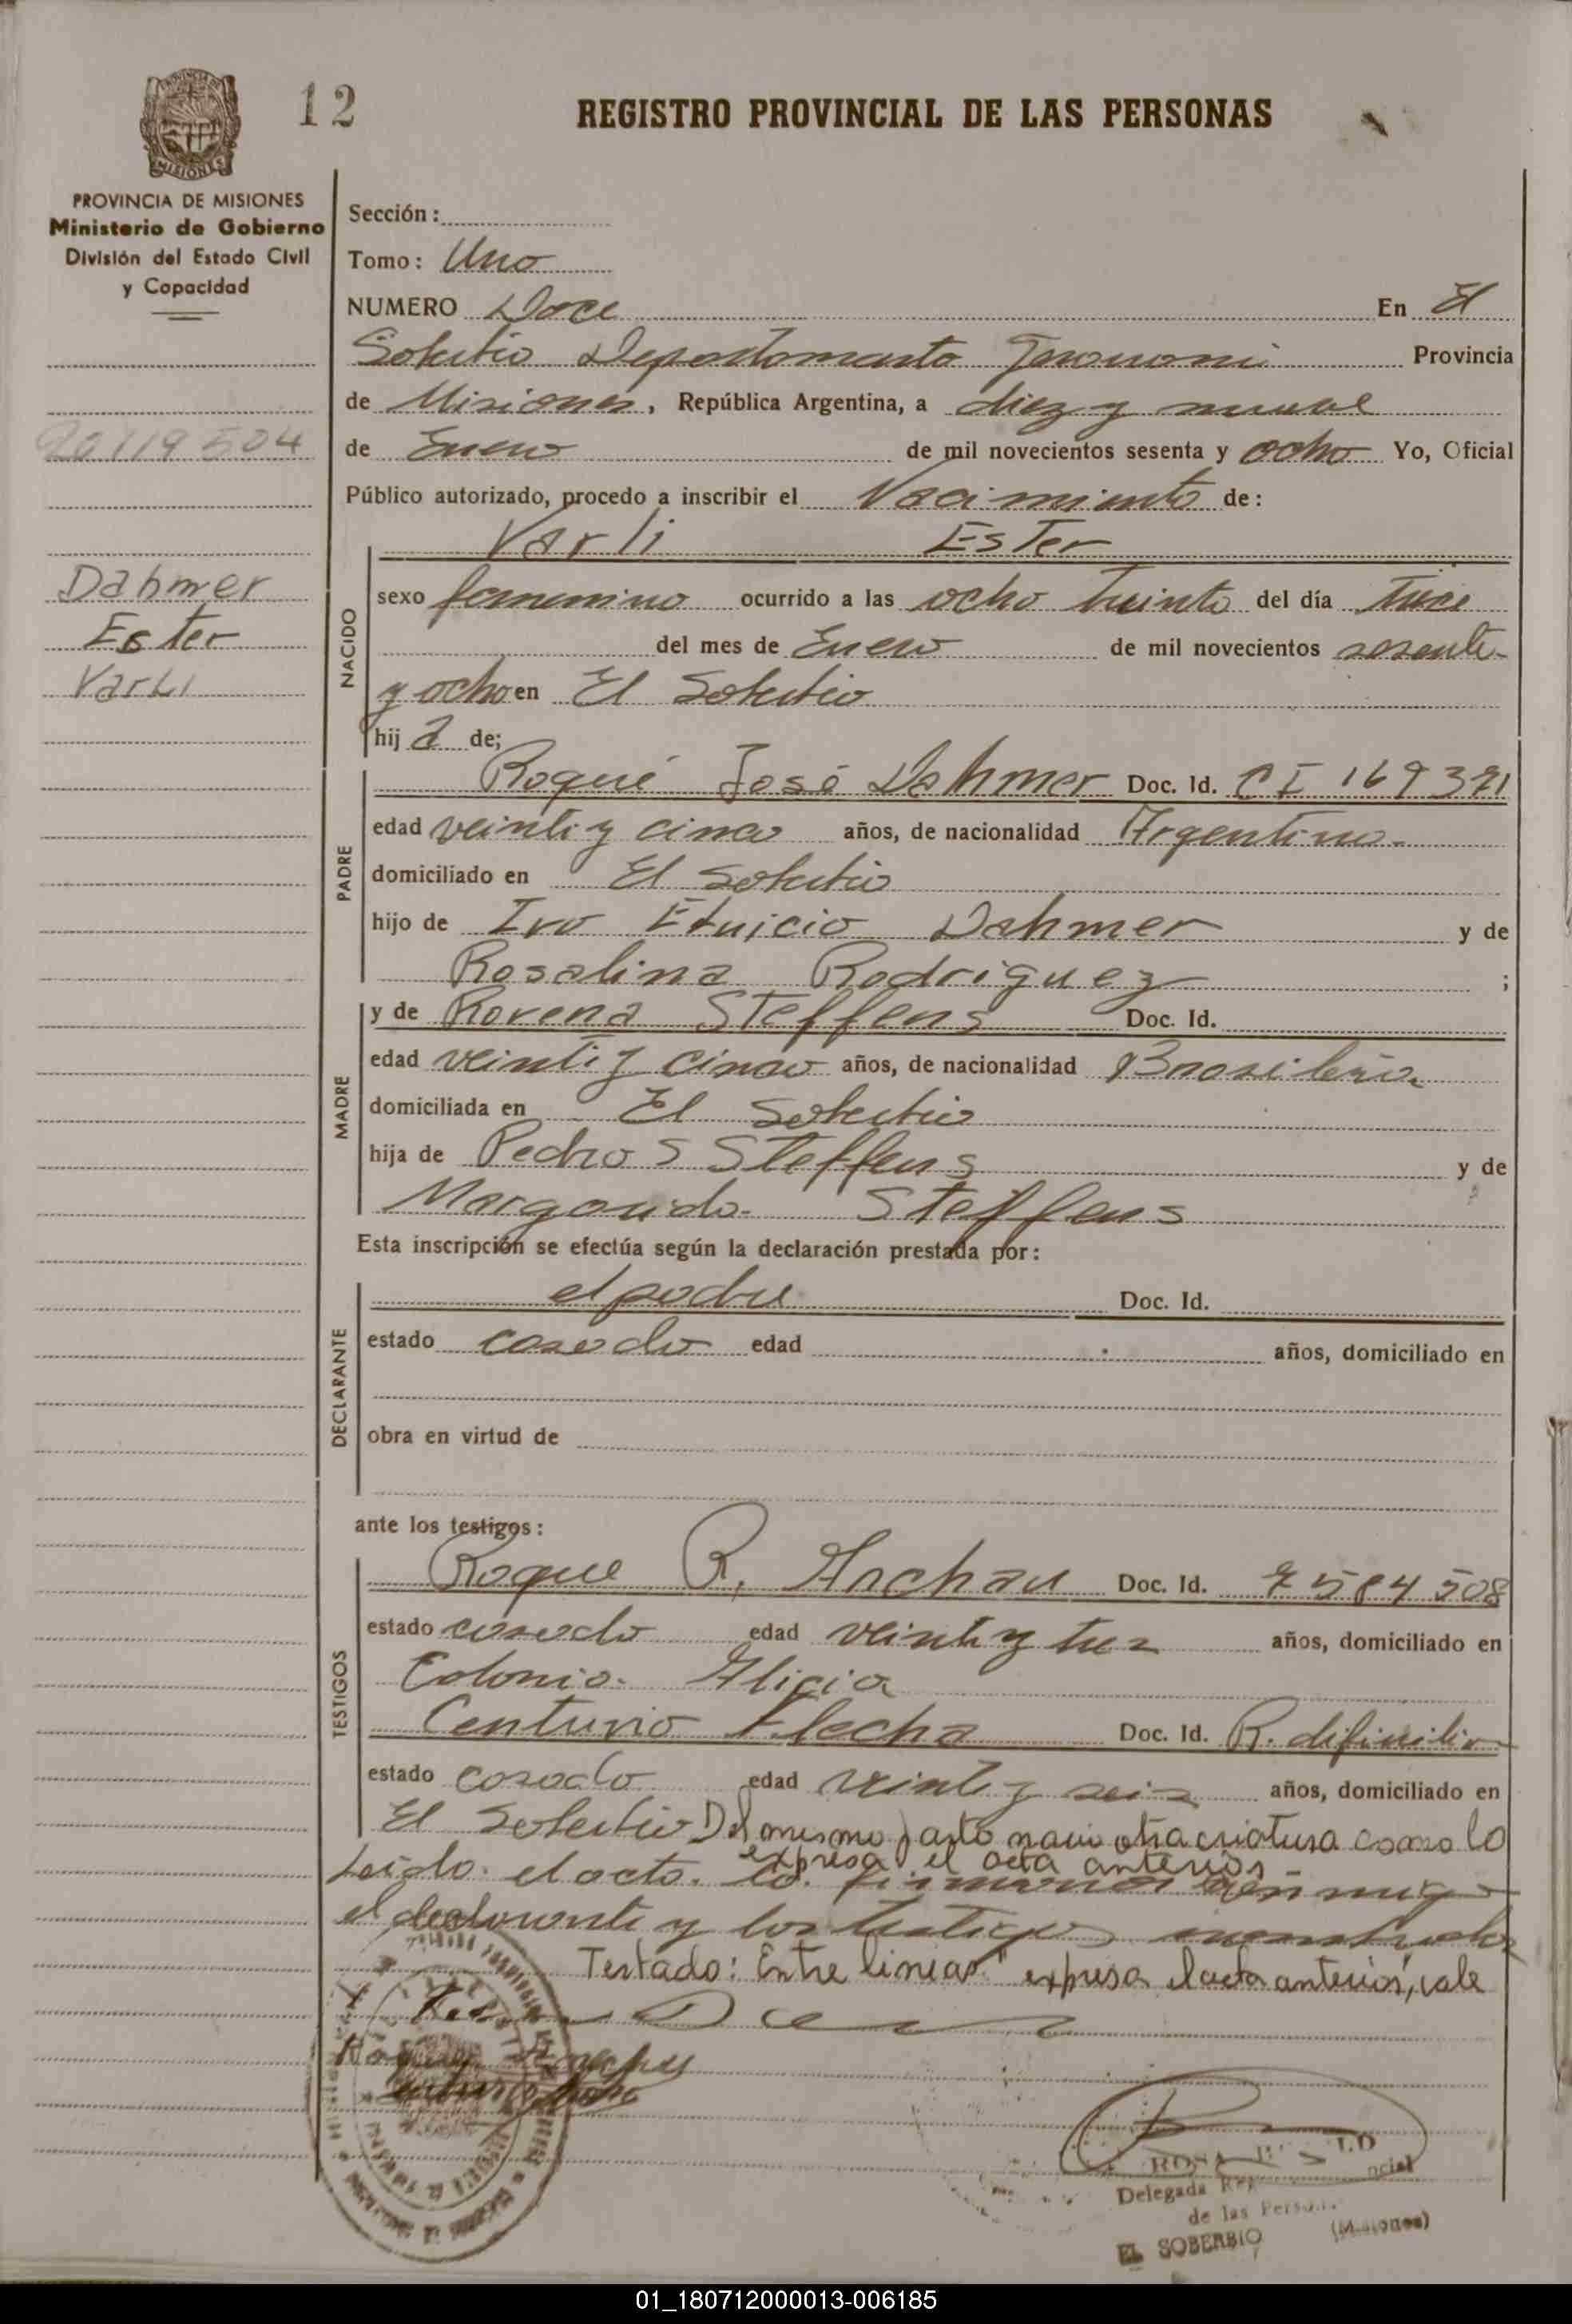 12
REGISTRO PROVINCIAL DE LAS PERSONAS
PROVINCIA DE MISIONES
Ministerio de Gobierno
División del Estado Civil
y Capacidad
20119504
Dahmer
Ester
Varli
Sección:
Tomo: Uno
NUMERO Doce En El
Soberbio Departamento Guarani Provincia
de Misiones, República Argentina, a diez y nueve
de Enero de mil novecientos sesenta y ocho Yo, Oficial
Público autorizado, procedo a inscribir el Nacimiento de:
Varli Ester
NACIDO
sexo femenino ocurrido a las ocho treinta del día trece
del mes de Enero de mil novecientos sesenta
y ocho en El Soberbio
hija de;
PADRE
Roque José Dahmer Doc. Id. CI 169371
edad veinti y cinco años, de nacionalidad Argentina
domiciliado en El Soberbio
hijo de Ivo Dahmer y de
Rosalina Rodriguez ;
MADRE
y de Rovena Steffens Doc. Id.
edad veinti y cinco años, de nacionalidad Brasileña
domiciliada en El Soberbio
hija de Pedro S Steffens y de
Margarida Steffens
Esta inscripción se efectúa según la declaración prestada por:
DECLARANTE
el padre Doc. Id.
estado casado edad años, domiciliado en
obra en virtud de
ante los testigos:
TESTIGOS
Roque R. Anchau Doc. Id. 7584508
estado casado edad veinti y tres años, domiciliado en
Colonia Alicia
Centurio Flecha Doc. Id. R. difinitiva
estado casado edad veinti y seis años, domiciliado en
El Soberbio Del mismo parto nacio otra criatura como lo
expresa el acta anterior
Leido el acta la firmaron con migo
el declarante y los testigos
Testado: Entre lineas "expresa el acta anterior", vale
Delegada
de las
EL SOBERBIO (Misiones)
01_180712000013-006185